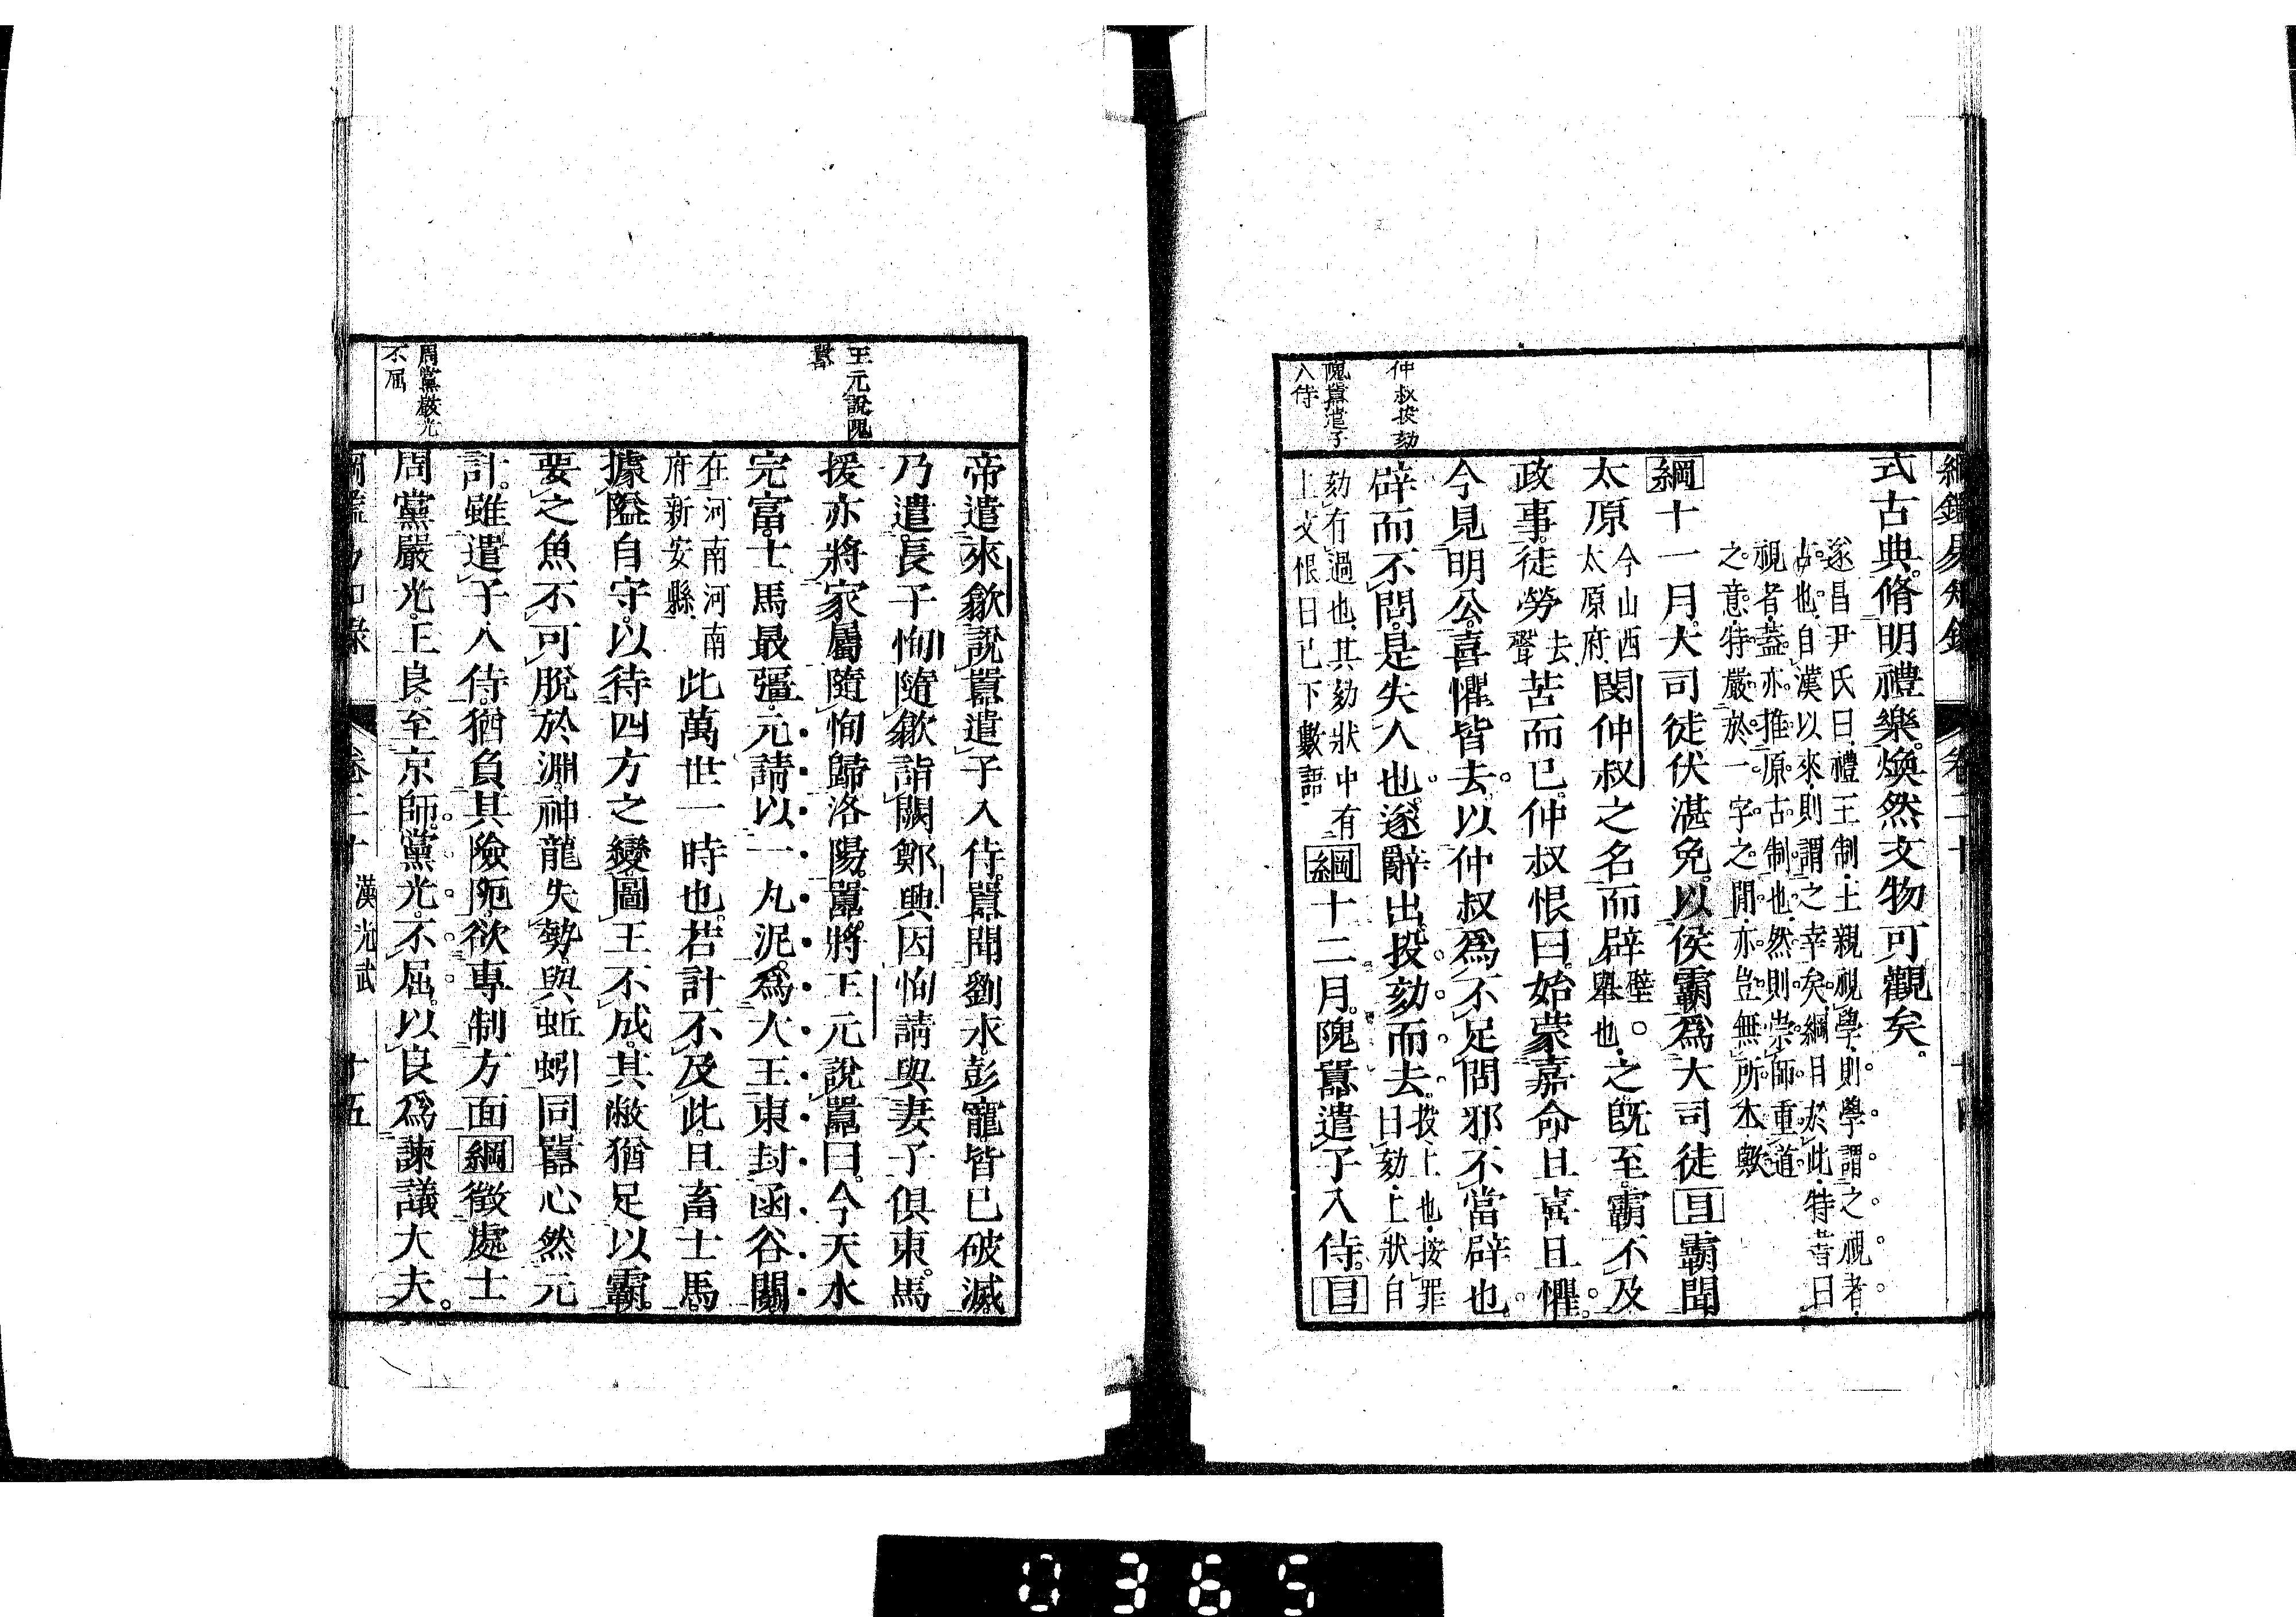 綱鑑易知錄 卷二十 十四
式古典脩明禮樂煥然文物可觀矣。
遂昌尹氏曰禮王制王親視學則學謂之視者
古也自漢以來則謂之幸矣綱目於此特書曰
視者蓋亦推原古制也然則崇師重道
之意特嚴於一字之間亦豈無所本歟
綱十一月大司徒伏湛免以侯霸爲大司徒目霸聞
太原今山西太原府閔仲叔之名而辟壁舉也之既至霸不及
政事徒勞去聲苦而已仲叔恨曰始蒙嘉命且喜且懼。
今見明公喜懼皆去。以仲叔爲不足問邪不當辟也。
辟而不問是失人也。遂辭出投劾而去。投上也按罪曰劾上狀自
劾有過也其劾狀中有上文恨曰已下數語綱十二月隗囂遣子入侍。目
仲叔投劾
隗囂遣子
入侍
帝遣來歙說囂遣子入侍囂聞劉永彭寵皆已破滅
乃遣長子恂隨歙詣闕鄭興因恂請與妻子俱東。馬
援亦將家屬隨恂歸洛陽。囂將王元說囂曰今天水
完富士馬最彊元請以一丸泥爲大王東封函谷關
在河南河南府新安縣此萬世一時也若計不及此且畜士馬
據隘自守以待四方之變圖王不成其敝猶足以霸
要之魚不可脫於淵神龍失勢與蚯蚓同囂心然元
計。雖遣子入侍猶負其險阨欲專制方面綱徵處士
周黨嚴光王良至京師黨光不屈以良爲諫議大夫。
王元說隗
囂
周黨嚴光
不屈
綱鑑易知錄 卷二十 漢光武 十五
0365